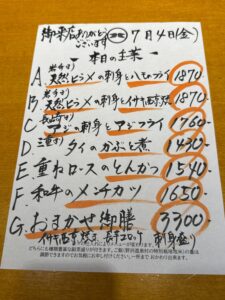 御来店ありがとうございます 7月4日(金)
本日の主菜
岩手より
A. 天然ヒラメの刺身と八もフライ 1870
岩手より
B 天然ヒラメの刺身とイサキ西京焼 1870
長崎より
C アジの刺身とアジフライ 1760
三重より
D タイのかぶと煮 1430
E. 重ねロースのとんかつ 1540
F. 和牛のメンチカツ 1650
G. おまかせ御膳 3300
イサキ西京焼き 刺身盛り